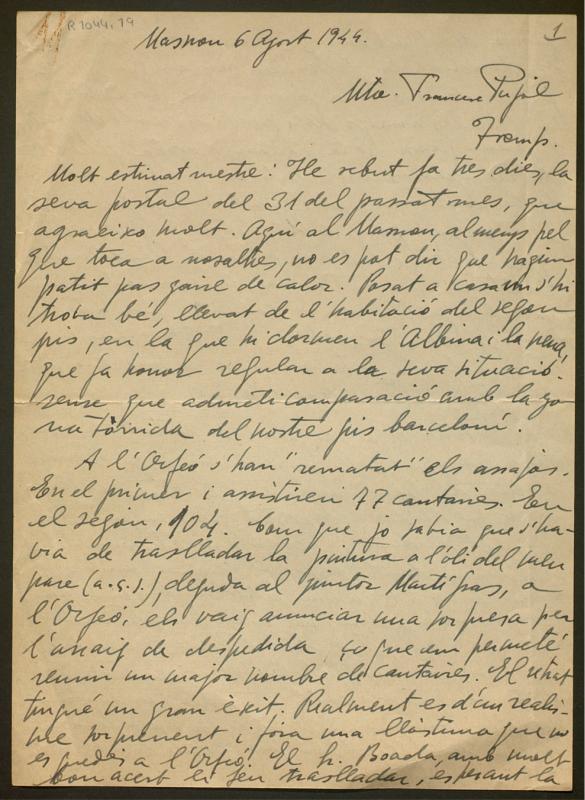 R 1044, 19
1
Masnou 6 Agost 1944.
Mtre. Francesc Pujol
Tremp.
Molt estimat mestre: He rebut fa tres dies, la
seva postal del 31 del passat mes, que
agraeixo molt. Aquí al Masnou, almenys pel
que toca a nosaltres, no es pot dir que hagim
patit pas gaire de calor. Posat a casa un s'hi
troba bé, llevat de l'habitació del segon
pis, en la que hi dormen l'Albina i la nena,
que fa honor regular a la seva situació
sense que admeti comparació amb la zo
na tòrrida del nostre pis barceloní.
A l'Orfeó s'han "rematat" els assajos.
En el primer i assistiren 77 cantaires. En
el segon, 104. Com que jo sabia que s'ha-
via de traslladar la pintura a l'oli del meu
pare (a.c.s.), deguda al pintor Martí Gras, a
l'Orfeó, els vaig anunciar una sorpresa per
l'assaig de despedida ço que em permeté
reunir un major nombre de cantaires. El retrat
tingué un gran èxit. Realment es d'un realis-
me sorprenent i fora una llàstima que no
es quedés a l'Orfeó. El Sr. Boada, amb molt
bon acert el feu traslladar, esperant la